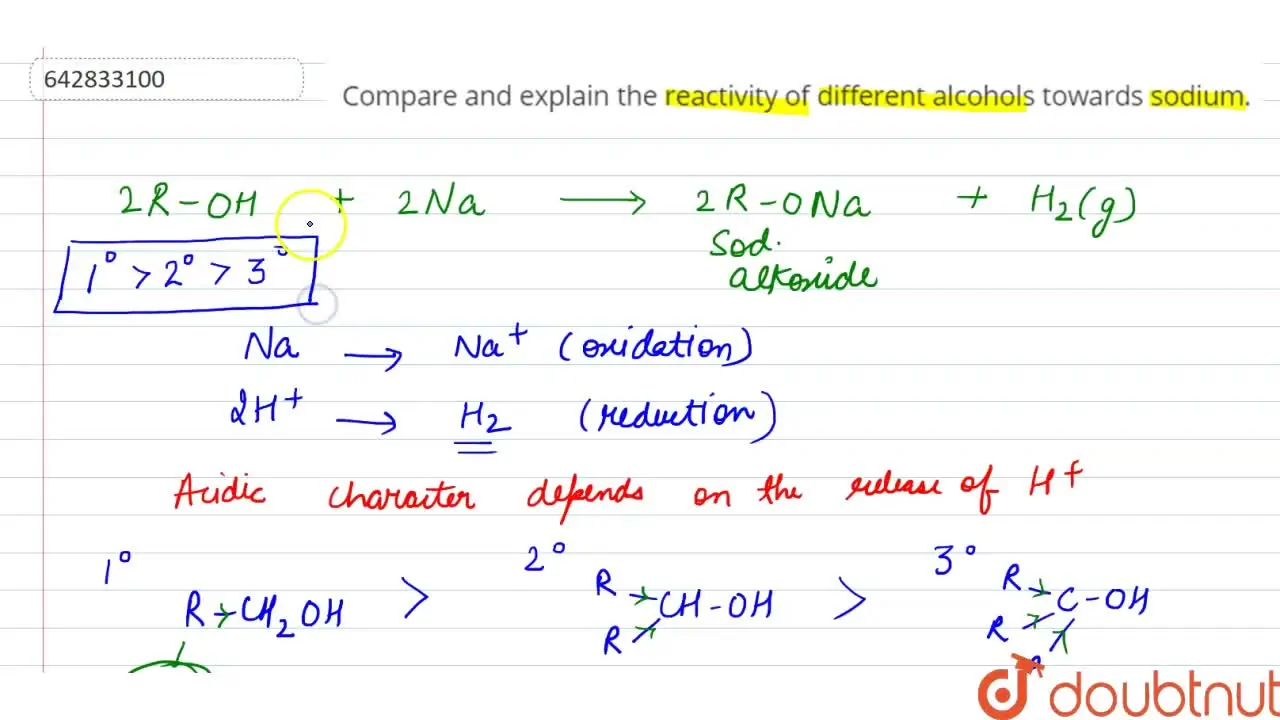 642833100
Compare and explain the reactivity of different alcohols towards sodium.
2R-OH + 2Na → 2R-ONa + H₂(g)
Sod.
alkoxide
1° > 2° > 3°
Na → Na⁺ (oxidation)
2H⁺ → H₂ (reduction)
Acidic character depends on the release of H⁺
1° 2° 3°
R→CH₂OH > R R CH-OH > R R R C-OH
doubtnut